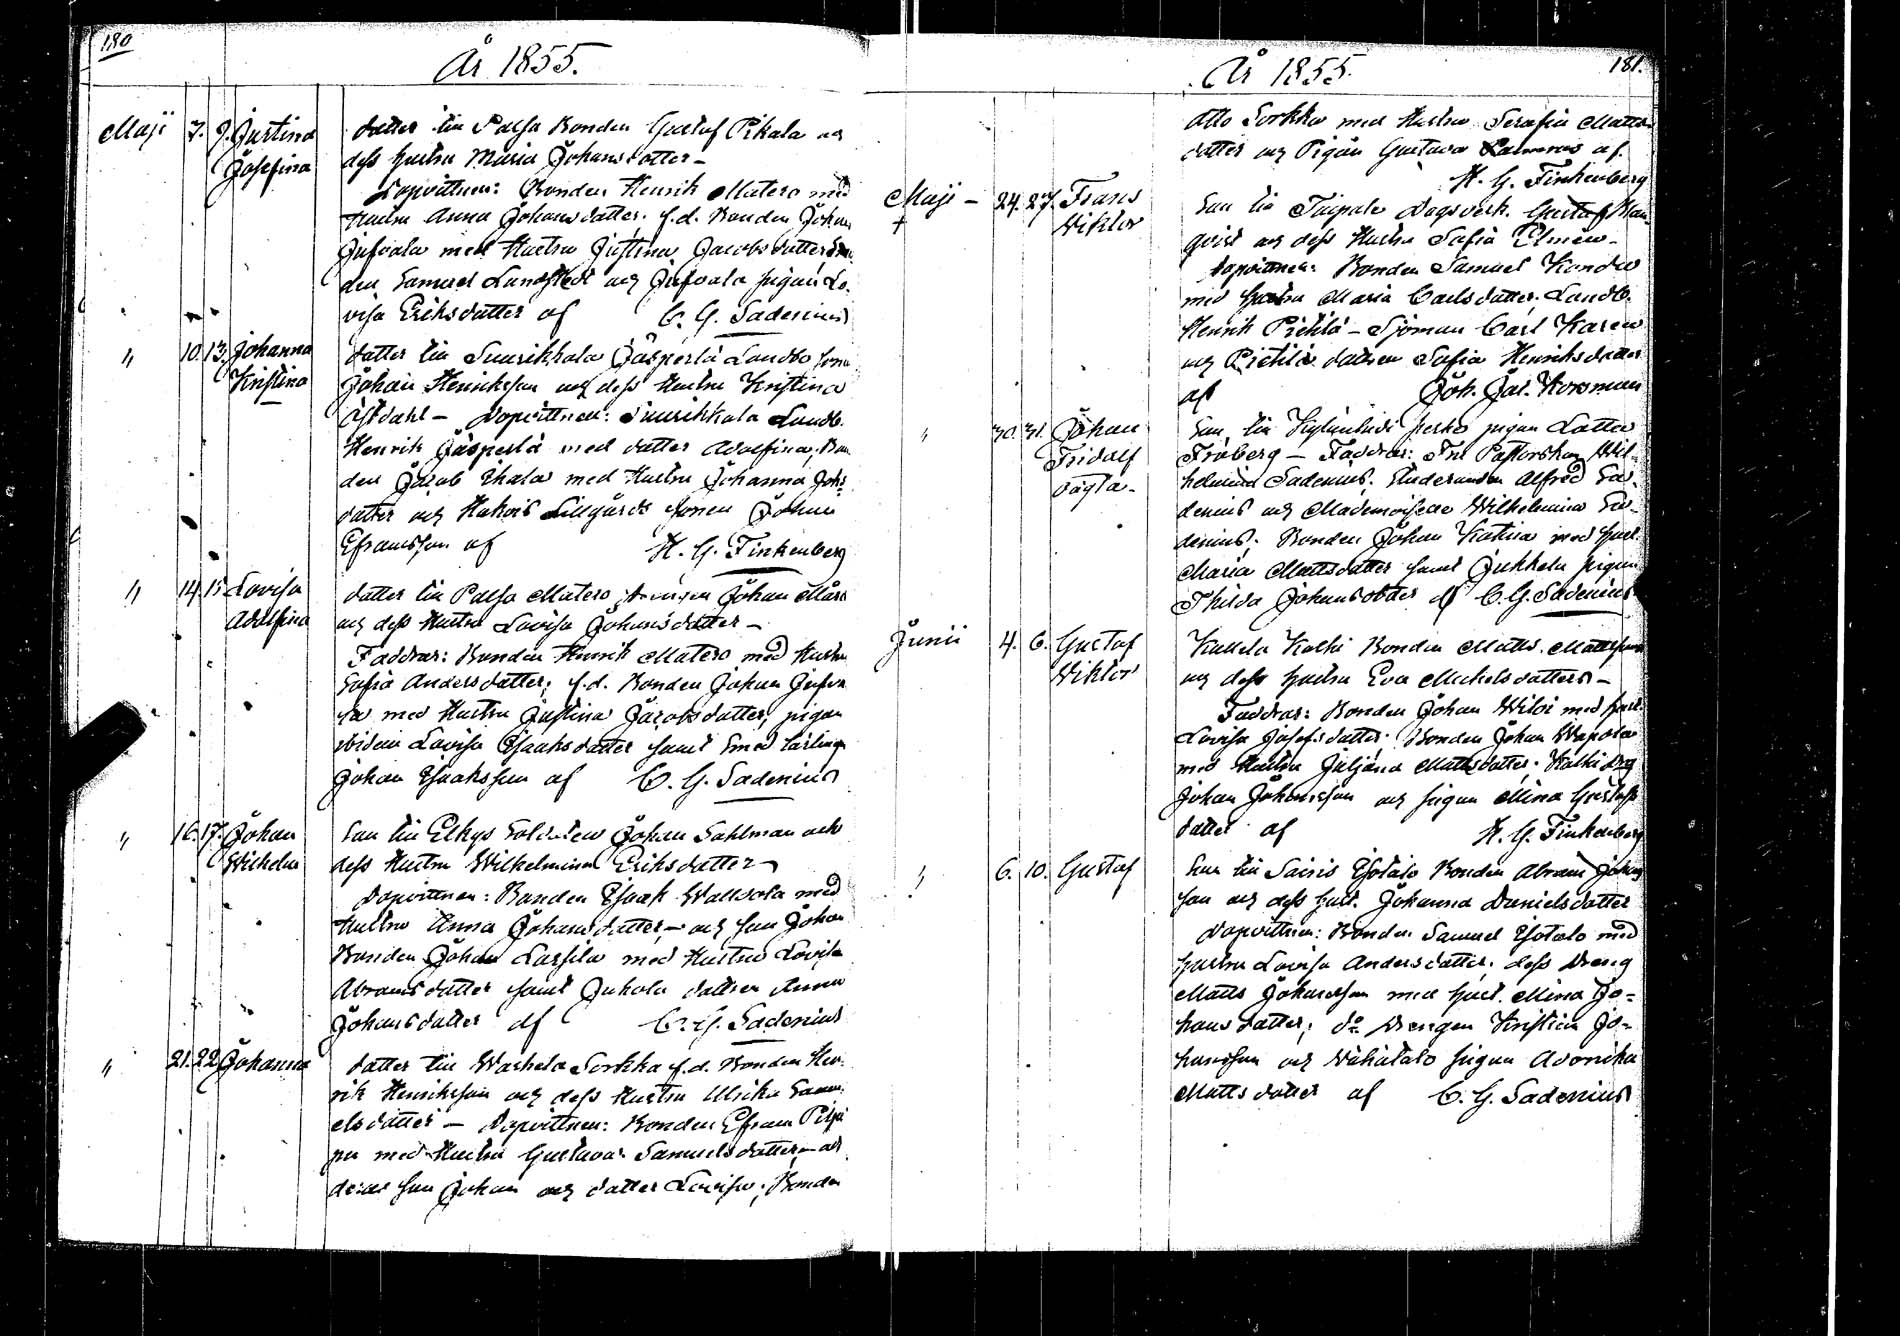 180
År 1855.
Maji 7. 9. Justina dotter till Palsa Bonden Gustaf Pikala och
Josefina dess hustru Maria Johansdotter –
Dopvittnen: Bonden Henrik Matero med
Hustru Anna Johansdotter; f.d. Bonden Johan
Jufvala med Hustru Justina Jacobsdotter,
den Samuel Lundstedt och Jufvala pigan Lo-
visa Eriksdotter af C. G. Sadenius
" 10. 13. Johanna dotter till Suurikkala Jäsperlä Landbo
Kristina Johan Henriksson och dess Hustru Kristina
Östdahl – Dopvittnen: Suurikkala Landb.
Henrik Jäsperlä med dotter Adolfina, Bon
den Jacob Ihala med Hustru Johanna Joh:
dotter och Hakois Lillgårds sonen Johan
Efraimsson af H. G. Finkenberg
" 14. 15. Lovisa dotter till Palsa Matero Johan
Adolfina och dess Hustru Lovisa Johansdotter –
Faddrar: Bonden Henrik Matero med Hustru
Sofia Andersdotter; f.d. Bonden Johan Jufva
la med Hustru Justina Jacobsdotter; pigan
Lovisa Isaaksdotter samt Smed Lärlingen
Johan Isaaksson af C. G. Sadenius
" 16. 17. Johan Son till Elkys Soldaten Johan Sahlman och
Wilhelm dess Hustru Wilhelmina Eriksdotter
Dopvittnen: Bonden Isaak Wallvola med
Hustru Anna Johansdotter – och son Johan
Bonden Johan Lassila med Hustru Lovisa
Abramsdotter samt Juhola dottren Anna
Johansdotter af C. G. Sadenius
" 21. 22. Johanna dotter till Warhela Sorkka f.d. Bonden Hen-
rik Henriksson och dess Hustru Ulrika Samu-
elsdotter – Dopvittnen: Bonden Efraim
med Hustru Gustava Samuelsdotter –
deras son Johan och dotter Lovisa; Bonden
År 1855.
181.
Otto Sorkka med Hustru Serafia Matts-
dotter och Pigan Gustava af.
H. G. Finkenberg
Maji – 24. 27. Frans Son till Taipale Dagsverk. Gustaf
+ Wiktor qvist och dess Hustru Sofia Elmén –
Dopvittnen: Bonden Samuel Kondio
med hustru Maria Carlsdotter. Landb.
Henrik Pietilä – Sjöman Carl Karen
och Pietilä dottren Sofia Henriksdotter
af Joh. Jac. Korsman
" 30. 31. Johan Son till pigan Lotta
Fridolf Fröberg – Faddrar: Fru Pastorskan Wil-
oägta – helmina Sadenius. Studeranden Alfred Sa-
denius och Mademoiselle Wilhelmina Sa-
denius; Bonden Johan Katina med hust.
Maria Mattsdotter samt Jukkela pigan
Thilda Johansdotter af C. G. Sadenius
Junii 4. 6. Gustaf Kaukola Kolki Bonden Matts Mattsson
Wiktor och dess hustru Eva Michelsdotter –
Faddrar: Bonden Johan Wiloi med hust.
Lovisa Josefsdotter. Bonden Johan Wapola
med Hustru Juliana Mattsdotter. Kolki drg
Johan Johansson och pigan Mina Gustafs
dotter af H. G. Finkenberg
" 6. 10. Gustaf Son till Sairis Isotalo Bonden Abram Johans
son och dess hust. Johanna Danielsdotter
Dopvittnen: Bonden Samuel Isotalo med
hustru Lovisa Andersdotter; dess Dreng
Matts Johansson med hust. Mina Jo-
hansdotter; do Drengen Kristian Jo-
hansson och Wähätalo pigan Avonika
Mattsdotter af C. G. Sadenius